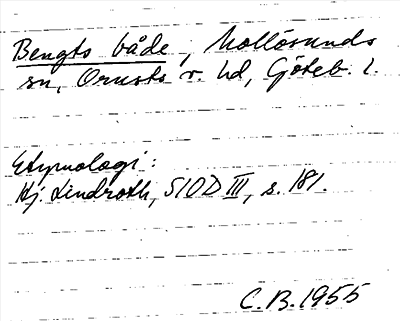 Bengts både, Mollösunds
sn, Orusts v. hd, Göteb. l.
Etymologi:
Hj. Lindroth, SIOD III, s. 181.
C.B. 1955